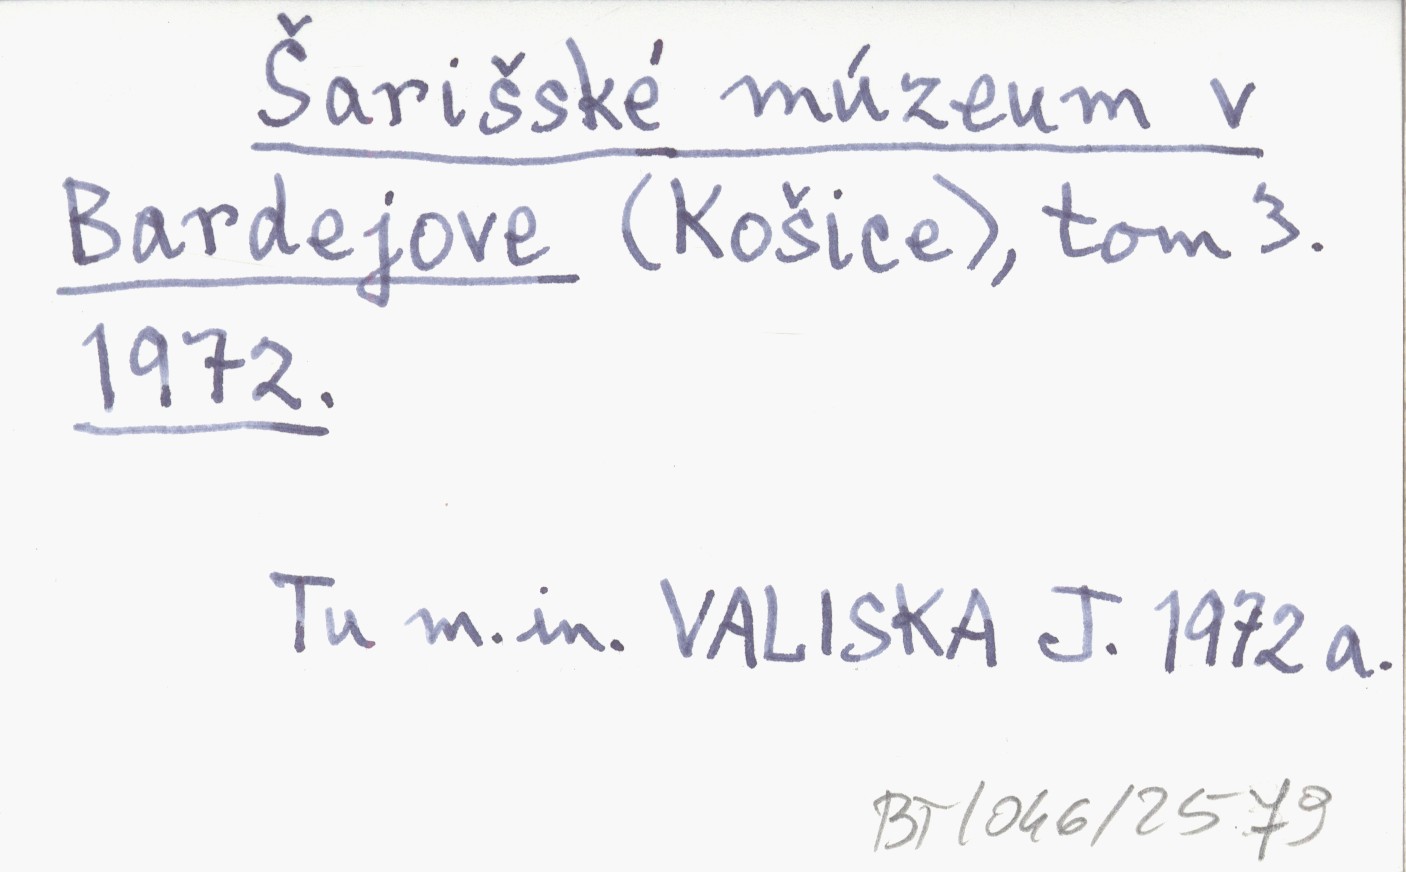 Šarišské múzeum v
Bardejove (Košice), tom 3.
1972.
Tu m.in. VALISKA J. 1972 a.
BT/046/2579